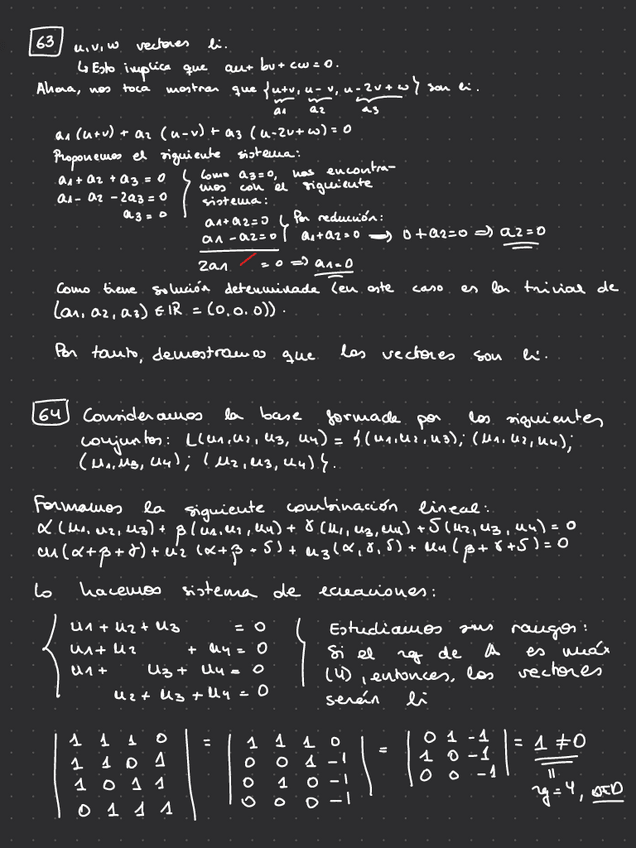 63 u,v,w vectores li.
↳ Esto implica que au+ bv+ cw=0.
Ahora, nos toca mostrar que {u+v, u-v, u-2v+w} son li.
a1 a2 a3
a1 (u+v) + a2 (u-v) + a3 (u-2v+w)=0
Proponemos el siguiente sistema:
a1+a2+a3=0
a1-a2-2a3=0
a3=0
Como a3=0, nos encontra-
mos con el siguiente
sistema:
a1+a2=0
a1-a2=0
2a1 =0 ⇒ a1=0
Por reducción:
a1+a2=0 → 0+a2=0 ⇒ a2=0
Como tiene solución determinada (en este caso es la trivial de
(a1, a2, a3) ∈ IR = (0,0,0)).
Por tanto, demostramos que los vectores son li.
64 Consideramos la base formada por los siguientes
conjuntos: L(u1,u2,u3,u4) = {(u1,u2,u3); (u1,u2,u4);
(u1,u3,u4); (u2,u3,u4)}.
Formamos la siguiente combinación lineal:
α(u1,u2,u3)+ β(u1,u2,u4)+ γ(u1,u3,u4)+ δ(u2,u3,u4)=0
u1(α+β+γ)+ u2 (α+β+δ)+ u3(α,γ,δ)+ u4(β+γ+δ)=0
Lo hacemos sistema de ecuaciones:
u1+u2+u3 =0
u1+u2 +u4=0
u1+ u3+u4=0
u2+u3+u4=0
Estudiamos sus rangos:
Si el rg de A es máx
(4), entonces, los vectores
serán li
1 1 1 0
1 1 0 1
1 0 1 1
0 1 1 1
=
1 1 1 0
0 0 1 -1
0 1 0 -1
0 0 0 -1
=
0 1 -1
1 0 -1
0 0 -1
= 1 ≠0
rg=4,